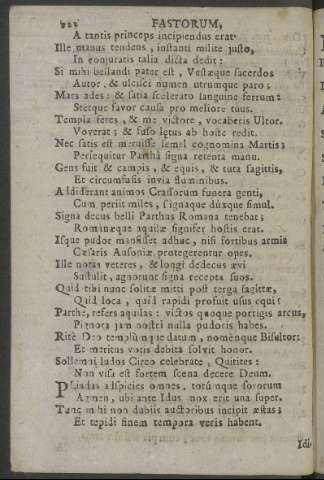 222 FASTORUM,
A tantis princeps incipiendus erat.
Ille manus tendens, instanti milite justo,
In conjuratis talia dicta dedit:
Si mihi bellandi pater est, Vestæque sacerdos
Autor, & ulcisci numen utrumque paro;
Mars ades: & satia scelerato sanguine ferrum:
Stetque favor causa pro meliore tuus.
Templa feres, & me victore, vocaberis Ultor.
Voverat; & fuso lætus ab hoste redit.
Nec satis est meruisse semel cognomina Martis;
Persequitur Parthâ signa retenta manu.
Gens fuit & campis, & equis, & tuta sagittis,
Et circumfusis invia fluminibus.
Addiderant animos Crassorum funera genti,
Cum periit miles, signaque dúxque simul.
Signa decus belli Parthus Romana tenebat;
Romanæque aquilæ signifer hostis erat.
Isque pudor mansisset adhuc, nisi fortibus armis
Cæsaris Ausoniæ protegerentur opes.
Ille notas veteres, & longi dedecus ævi
Sustulit, agnorunt signa recepta suos.
Quid tibi nunc solitæ mitti post terga sagittæ,
Quid loca, quid rapidi profuit usus equi?
Parthe, refers aquilas: victos quoque porrigis arcus,
Pignora jam nostri nulla pudoris habes.
Ritè Deo templúmque datum, noménque Bisultor:
Et meritus votis debita solvit honor.
Sollemni ludos Circo celebrate, Quirites:
Non visa est fortem scena decere Deum.
Pliadas adspicies omnes, totúmque sororum
Agmen, ubi ante Idus nox erit una super.
Tunc mihi non dubiis auctoribus incipit æstas;
Et tepidi finem tempora veris habent.
Idi-